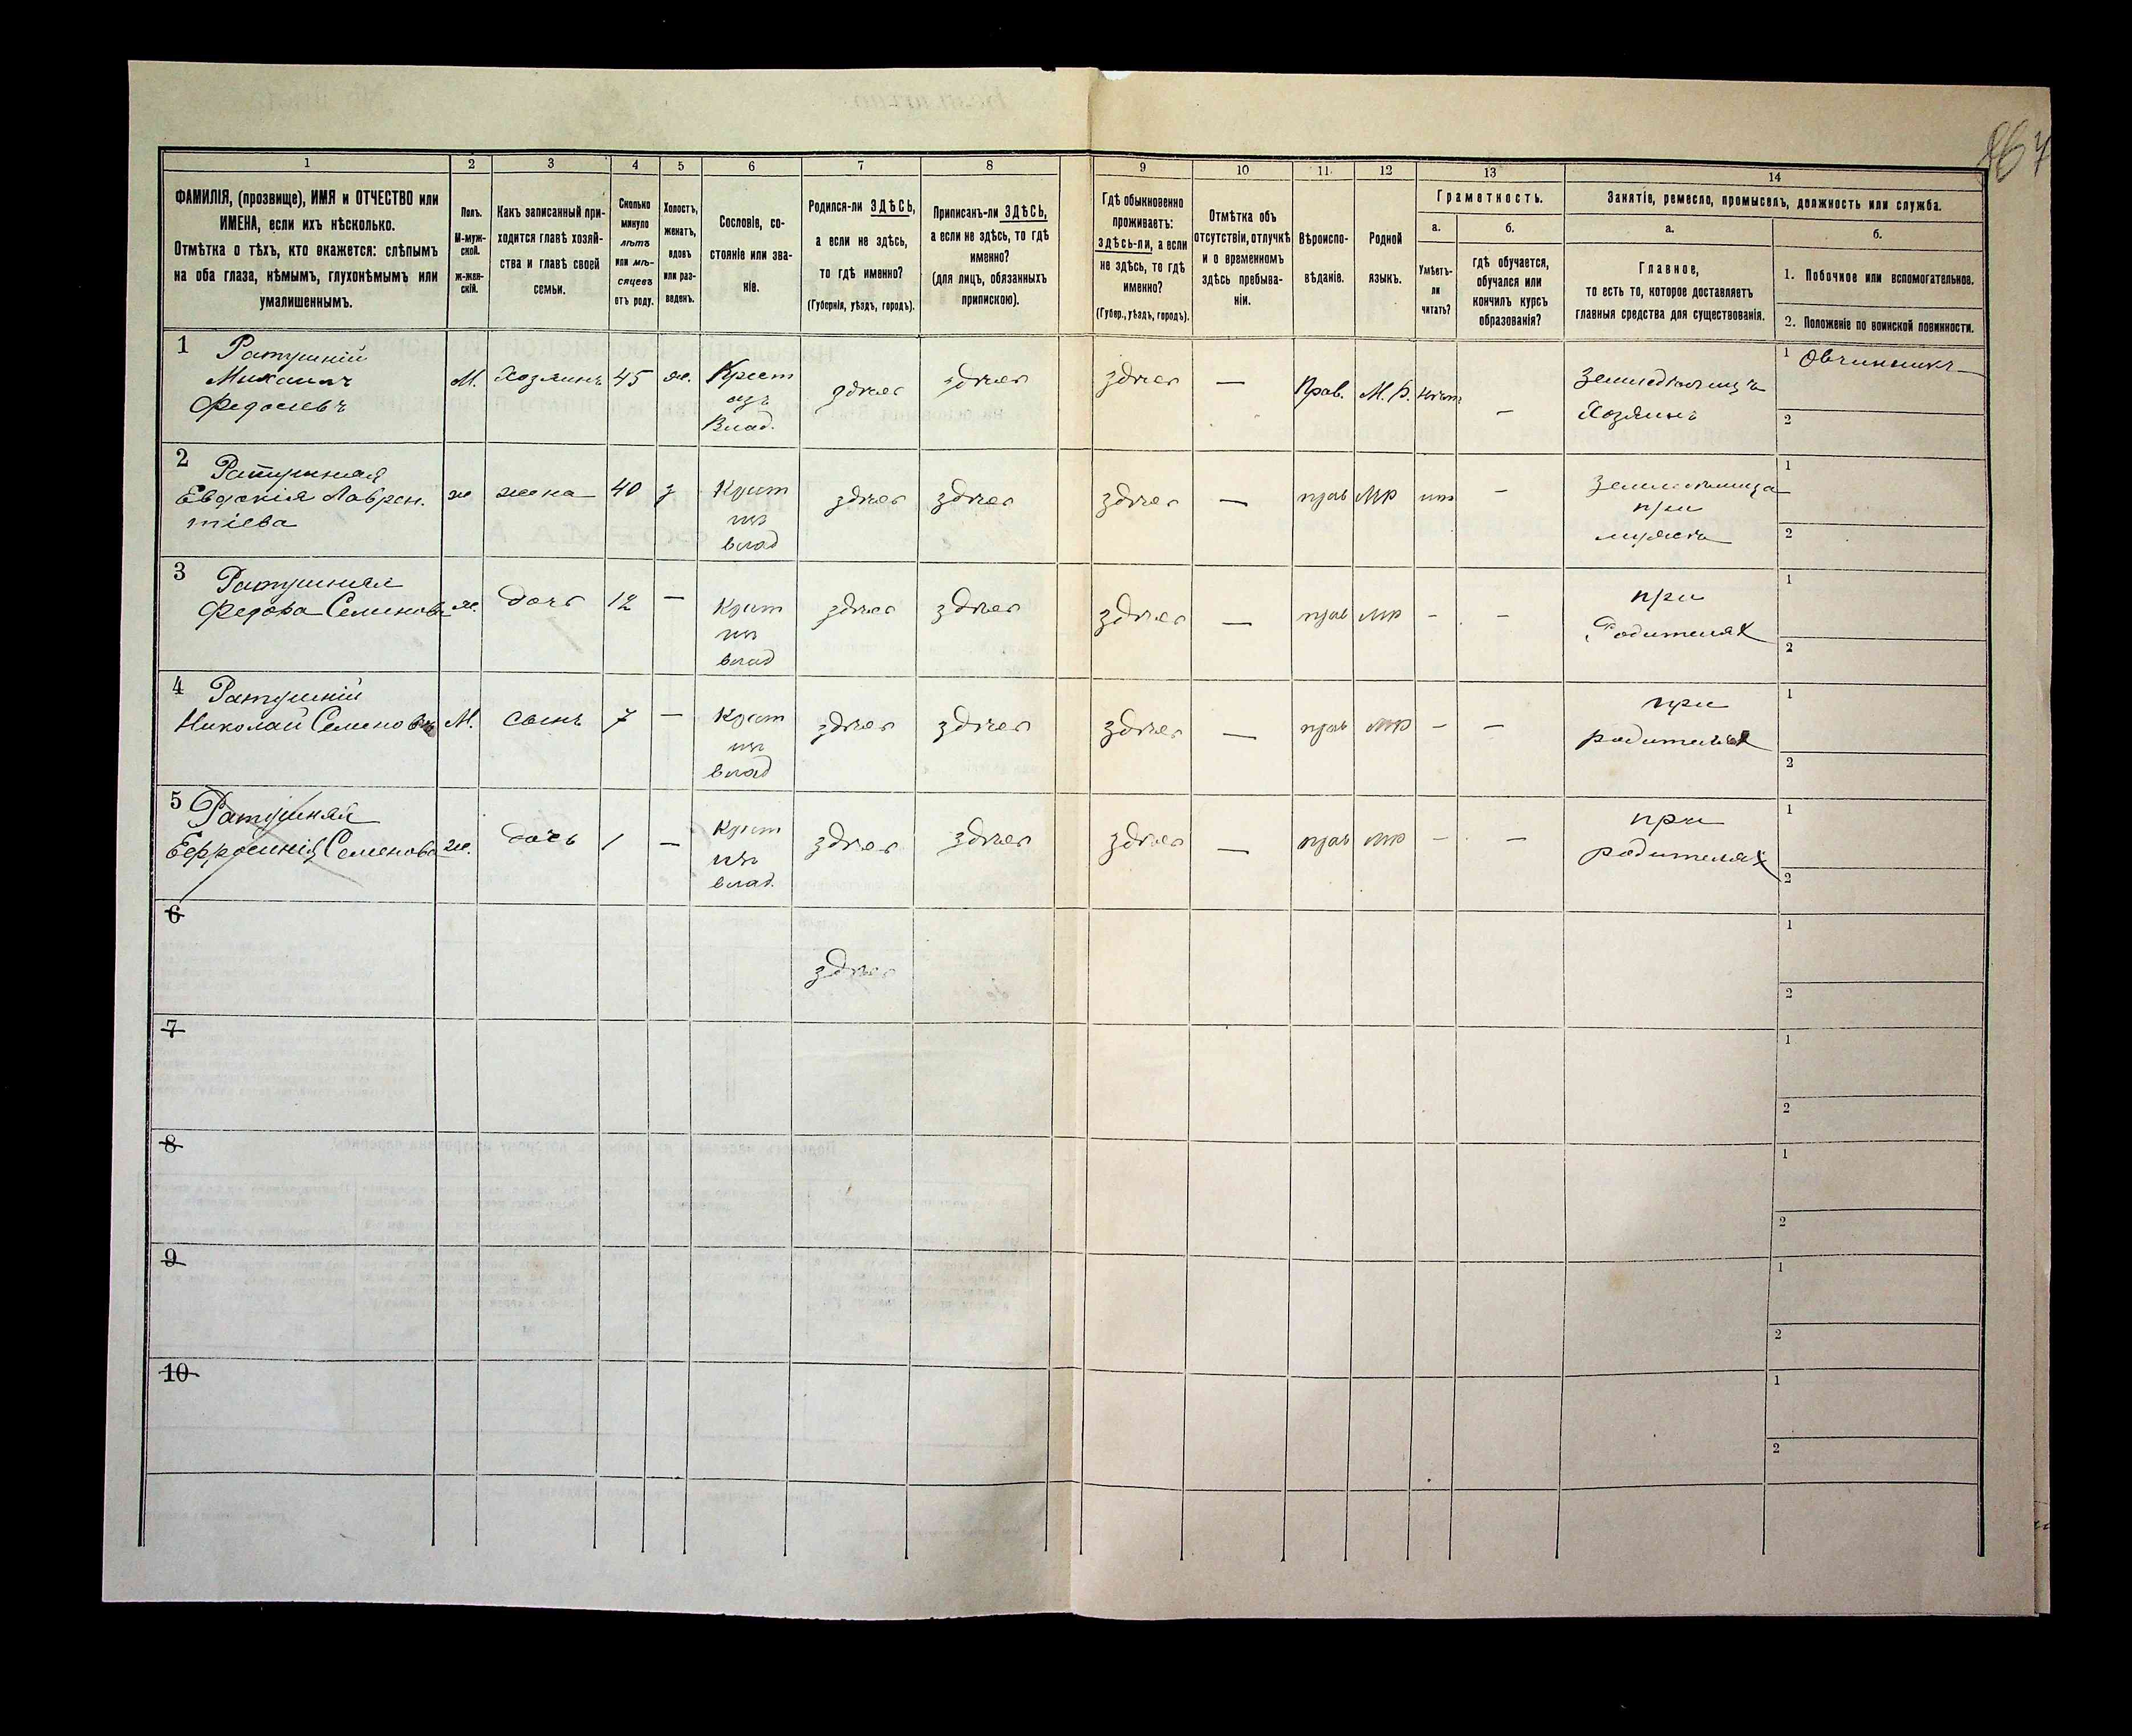 867
1 2 3 4 5 6 7 8 9 10 11 12 13 14
ФАМИЛІЯ, (прозвище), ИМЯ и ОТЧЕСТВО или
ИМЕНА, если ихъ нѣсколько.
Отмѣтка о тѣхъ, кто окажется: слѣпымъ
на оба глаза, нѣмымъ, глухонѣмымъ или
умалишеннымъ.
Полъ.
М-муж-
ской.
Ж-жен-
скій.
Какъ записанный при-
ходится главѣ хозяй-
ства и главѣ своей
семьи.
Сколько
минуло
лѣтъ
или мѣ-
сяцевъ
отъ роду.
Холостъ,
женатъ,
вдовъ
или раз-
веденъ.
Сословіе, со-
стояніе или зва-
ніе.
Родился-ли ЗДѢСЬ,
а если не здѣсь,
то гдѣ именно?
(Губернія, уѣздъ, городъ).
Приписанъ-ли ЗДѢСЬ,
а если не здѣсь, то гдѣ
именно?
(для лицъ, обязанныхъ
припискою).
Гдѣ обыкновенно
проживаетъ:
здѣсь-ли, а если
не здѣсь, то гдѣ
именно?
(Губер., уѣздъ, городъ).
Отмѣтка объ
отсутствіи, отлучкѣ
и о временномъ
здѣсь пребыва-
ніи.
Вѣроиспо-
вѣданіе.
Родной
языкъ.
Грамотность.
а.
Умѣетъ-
ли
читать?
б.
гдѣ обучается,
обучался или
кончилъ курсъ
образованія?
Занятіе, ремесло, промыселъ, должность или служба.
а.
Главное,
то есть то, которое доставляетъ
главныя средства для существованія.
б.
1. Побочное или вспомогательное.
2. Положеніе по воинской повинности.
1 Ратушній
Михаилъ
Федосіевъ
М. Хозяинъ 45 ж. Крест
изъ
Влад.
здѣсь здѣсь здѣсь — Прав. М.Р. нѣтъ —
Земледѣлецъ
Хозяинъ
1 Овчинникъ
2
2 Ратушная
Евдокія Лаврен.
тіева
ж жена 40 з Крест
изъ
влад
здѣсь здѣсь здѣсь — прав МР нѣт —
при
мужѣ
1
2
3 Ратушная
Федора Семенова
ж. дочь 12 — Крест
изъ
влад
здѣсь здѣсь здѣсь — прав МР — —
при
Родителях
1
2
4 Ратушній
Николай Семеновъ
М. сынъ 7 — Крест
изъ
влад
здѣсь здѣсь здѣсь — прав МР — —
при
родителях
1
2
5 Ратушная
Семенова
ж. дочь 1 — Крест
изъ
влад.
здѣсь здѣсь здѣсь — прав МР — —
при
родителях
1
2
6
здѣсь
1
2
7
1
2
8
1
2
9
1
2
10
1
2